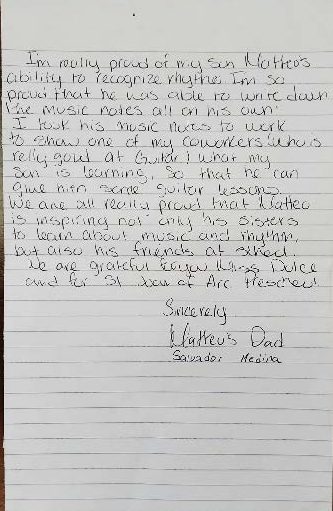 I'm really proud of my son Matteo's
ability to recognize rhythm. I'm so
proud that he was able to write down
the music notes all on his own.
I took his music notes to work
to show one of my coworkers (who is
relly good at Guitar) what my
son is learning. So that he can
give him some guitar lessons.
We are all really proud that Matteo
is inspiring not only his sisters
to learn about music and rhythm,
but also his friends at school.
We are grateful for you
and for St. Joan of Arc Preschool
Sincerely
Matteo's Dad
Salvador Medina